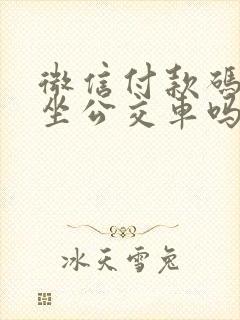 微信付款码
坐公交车吗
冰天雪兔